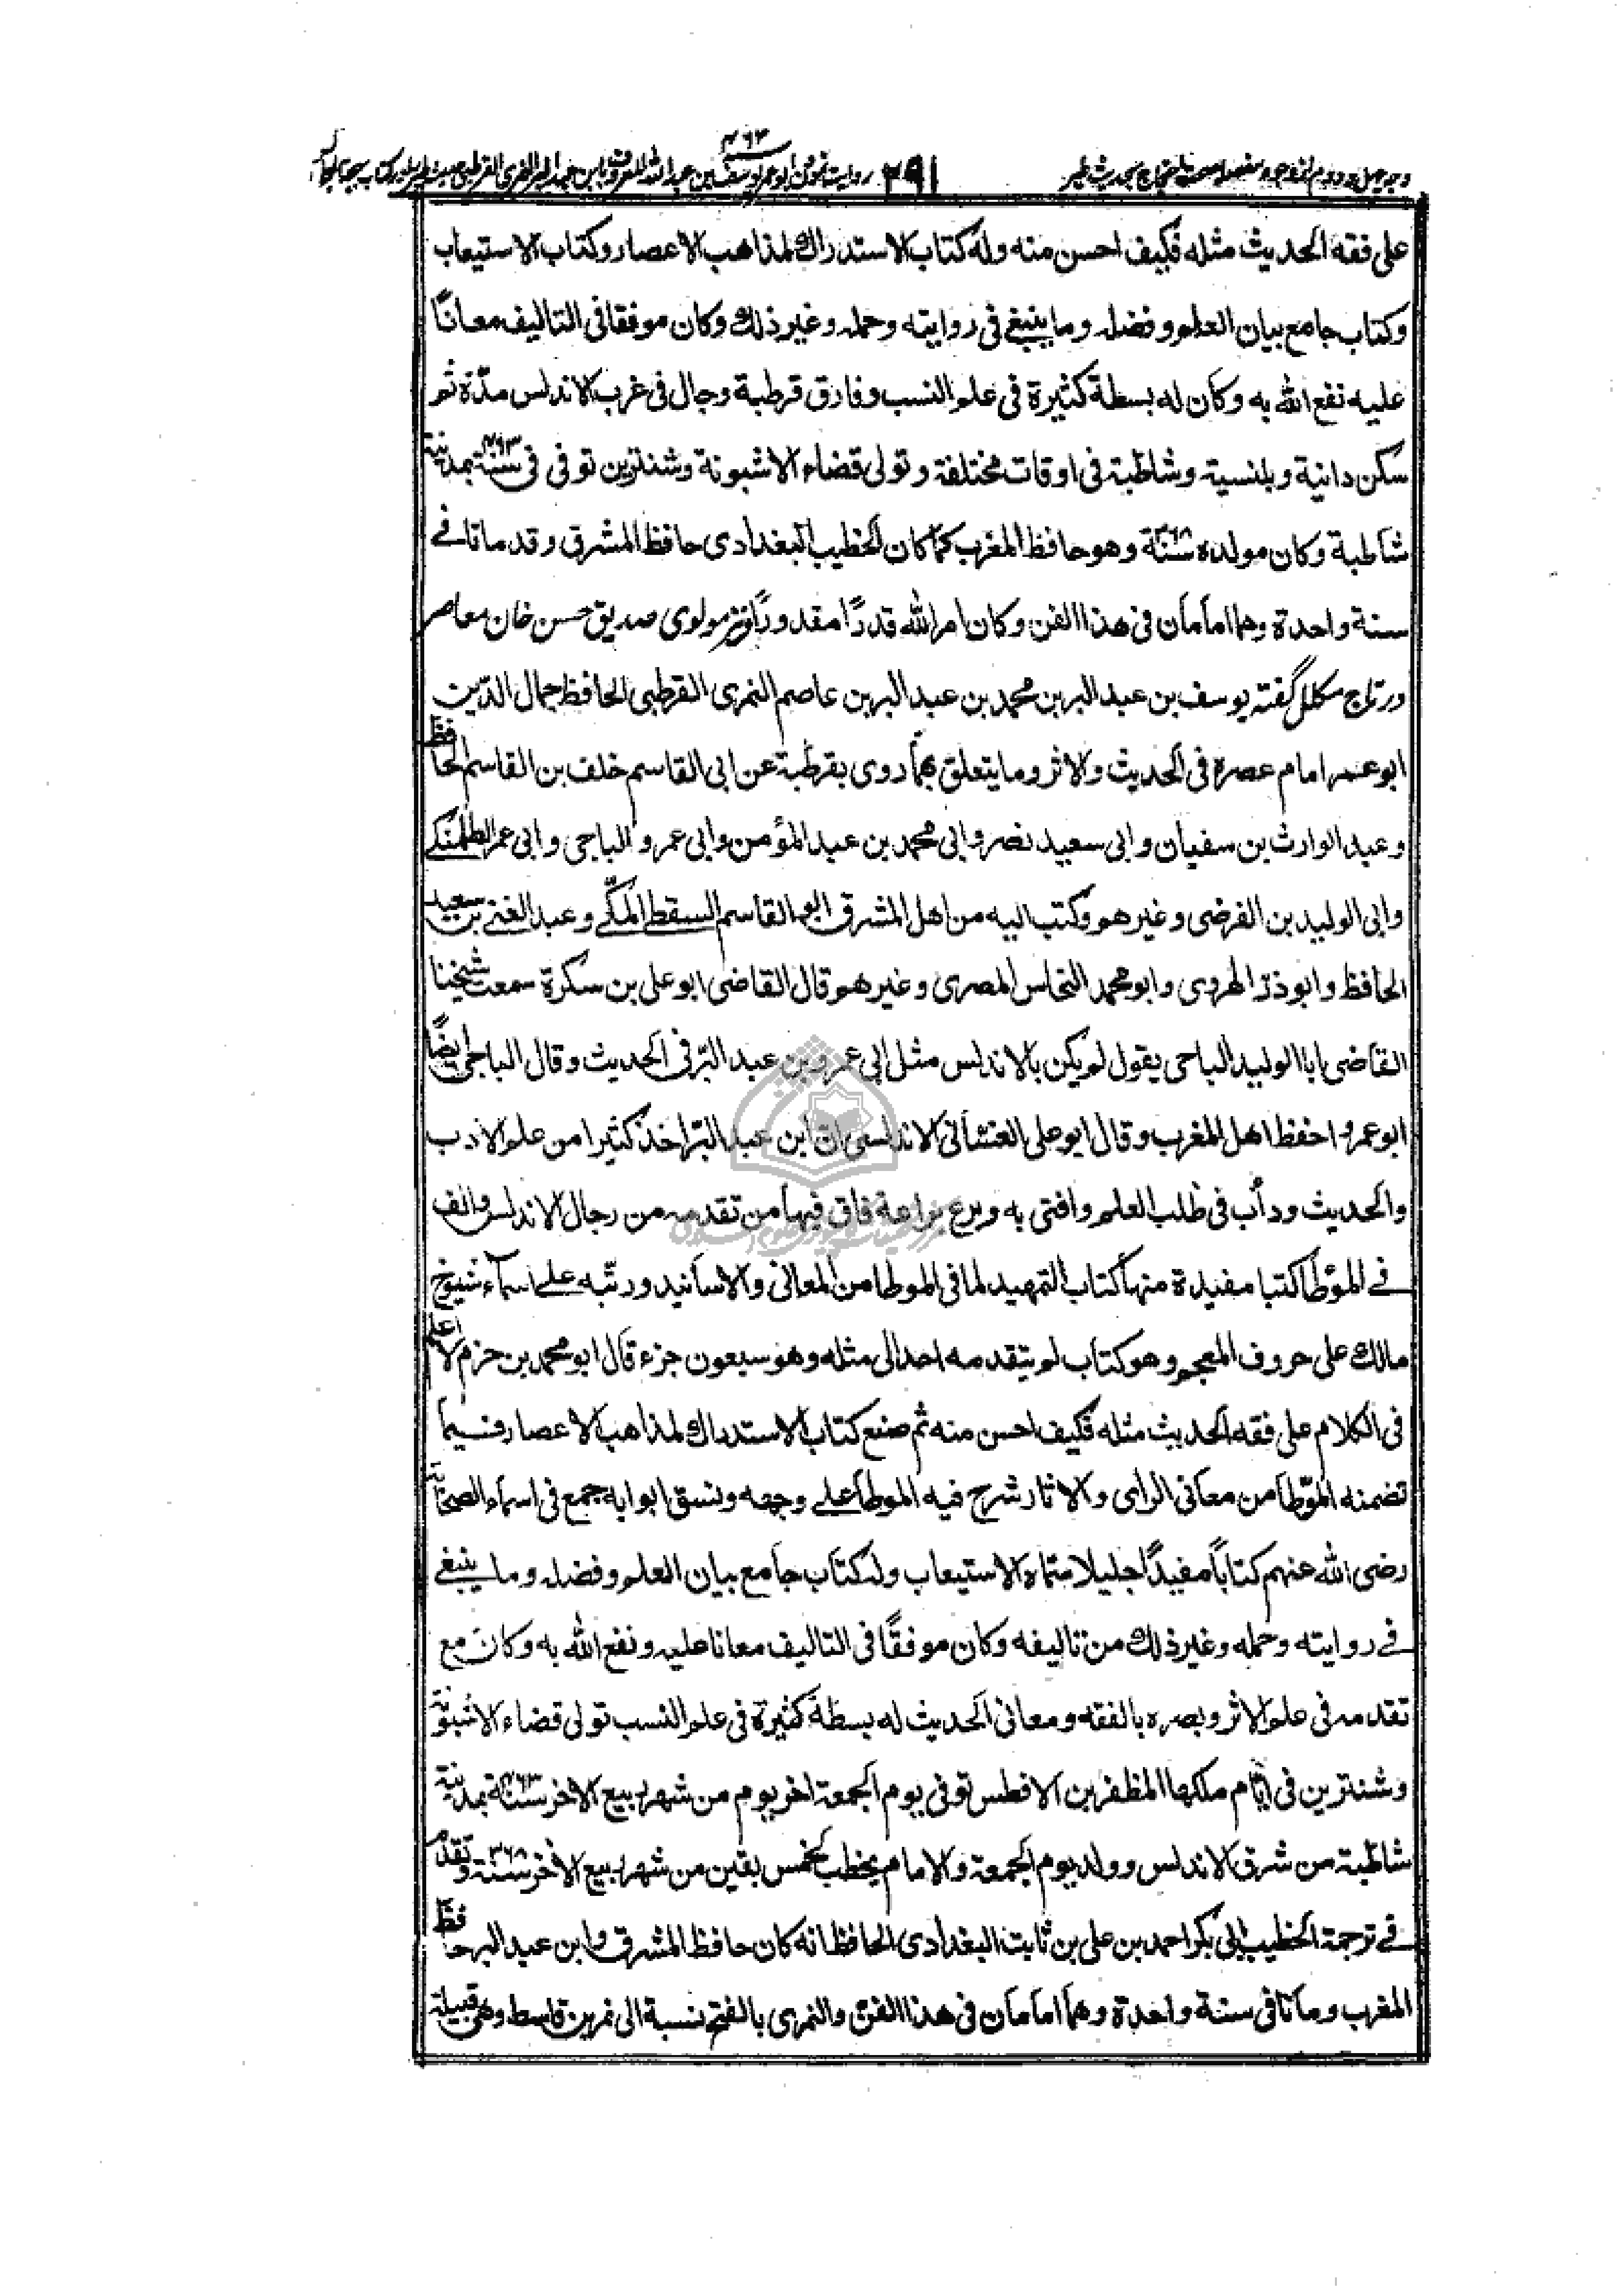 وجه چهل و دوم از وجوه مفصله صحت احتجاج بحديث طير ٢٩١ روايت نمودن ابو عمر يوسف بن عبد الله المعروف بابن عبد البر النمرى القرطبى حديث طير را در كتاب ٤٦٣
على فقه الحديث مثله فكيف احسن منه وله كتاب الاستدراك لمذاهب الاعصار وكتاب الاستيعاب
وكتاب جامع بيان العلم وفضله وما ينبغي فى روايته وحمله وغير ذلك وكان موفقا فى التاليف معانًا
عليه نفع الله به وكان له بسطة كثيرة فى علم النسب وفارق قرطبة وجال فى غرب الاندلس مدّة ثم
سكن دانية وبلنسية وشاطبة فى اوقات مختلفة وتولى قضاء الاشبونة وشنترين توفى فى سنة ٤٦٣ بمدينة
شاطبة وكان مولده سنة ٣٦٨ وهو حافظ المغرب كما كان الخطيب البغدادى حافظ المشرق وقد ماتا فے
سنة واحدة وهما امامان فى هذا الفن وكان امر الله قدرًا مقدورًا ونيز مولوى صديق حسن خان معاصر
در تاج مكلل گفته يوسف بن عبد البر بن محمد بن عبد البر بن عاصم النمرى القرطبى الحافظ جمال الدّين
ابو عمر امام عصره فى الحديث والاثر وما يتعلق بهما روى بقرطبة عن ابى القاسم خلف بن القاسم الحافظ
وعبد الوارث بن سفيان وابى سعيد نصر وابى محمد بن عبد المؤمن وابى عمرو الباجى وابى عمر الطلمنكے
وابى الوليد بن الفرضى وغيرهم وكتب اليه من اهل المشرق ابو القاسم السقطے المكّے وعبد الغنے بن سعيد
الحافظ وابو ذرّ الهروى وابو محمد النحاس المصرى وغيرهم قال القاضى ابو على بن سكرة سمعت شيخنا
القاضى ابا الوليد الباجى يقول لم يكن بالاندلس مثل ابى عمرو بن عبد البرّ فى الحديث وقال الباجى ايضًا
ابو عمرو احفظ اهل المغرب وقال ابو على الغسانى الاندلسى ان ابن عبد البرّ اخذ كثيرا من علم الادب
والحديث ودأب فى طلب العلم وافتى به وبرع براعة فاق فيها من تقدمه من رجال الاندلس والف
فے المؤطا كتبا مفيدة منها كتاب التمهيد لما فى الموطا من المعانى والاسانيد ورتّبه علے اسماء شيوخ
مالك على حروف المعجم وهو كتاب لم يتقدمه احد الى مثله وهو سبعون جزء قال ابو محمد بن حزم لا اعلم
فى الكلام على فقه الحديث مثله فكيف احسن منه ثم صنع كتاب الاستدراك لمذاهب الاعصار فيما
تضمنه المؤطا من معانى الراى والاثار شرح فيه الموطأ علے وجهه ونسق ابوابه جمع فى اسماء الصحابة
رضى الله عنهم كتاباً مفيدًا جليلا سماه الاستيعاب وله كتاب جامع بيان العلم وفضله وما ينبغے
فے روايته وحمله وغير ذلك من تاليفه وكان موفقًا فى التاليف معانا عليه ونفع الله به وكان مع
تقدمه فى علم الاثر وبصره بالفقه ومعانى الحديث له بسطة كثيرة فى علم النسب تولى قضاء الاشبونة
وشنترين فى ايّام ملكها المظفر بن الافطس توفى يوم الجمعة اخر يوم من شهر ربيع الاخر سنة ٤٦٣ بمدينة
شاطبة من شرق الاندلس وولد يوم الجمعة والامام يخطب لخمس بقين من شهر ربيع الاخر سنة ٣٦٨ وتقدم
فے ترجمة الخطيب ابى بكر احمد بن على بن ثابت البغدادى الحافظ انه كان حافظ المشرق وابن عبد البر حافظ
المغرب وماتا فى سنة واحدة وهما امامان فى هذا الفن والنمرى بالفتح نسبة الى نمر بن قاسط وهى قبيلة